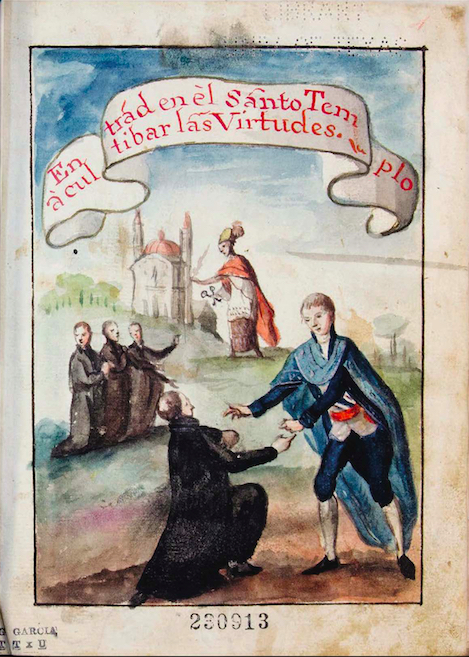 Entrad en èl Santo Templo
à cultibar las Virtudes.
230913
G GARCIA